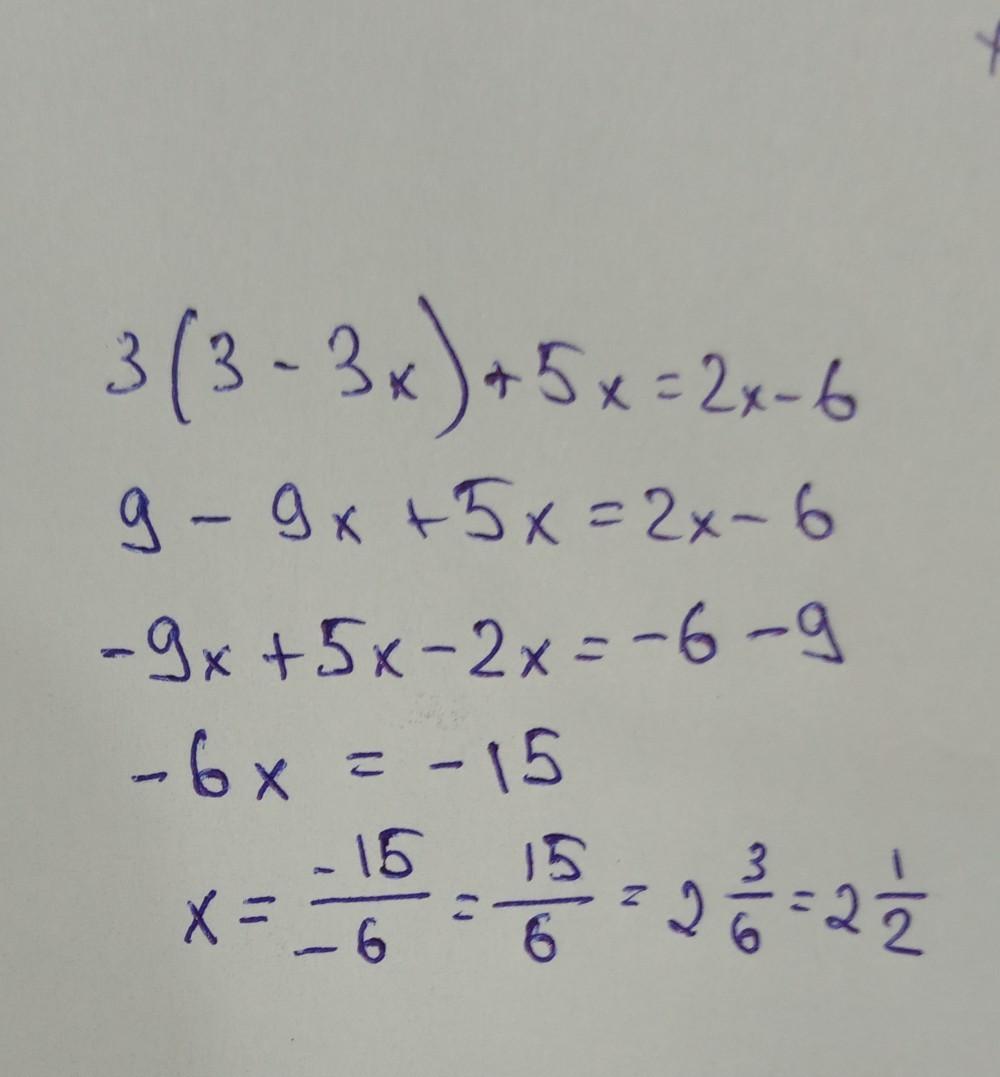 3(3 - 3x) + 5x = 2x - 6
9 - 9x + 5x = 2x - 6
-9x + 5x - 2x = -6 - 9
-6x = -15
x = -15/-6 = 15/6 = 2 3/6 = 2 1/2